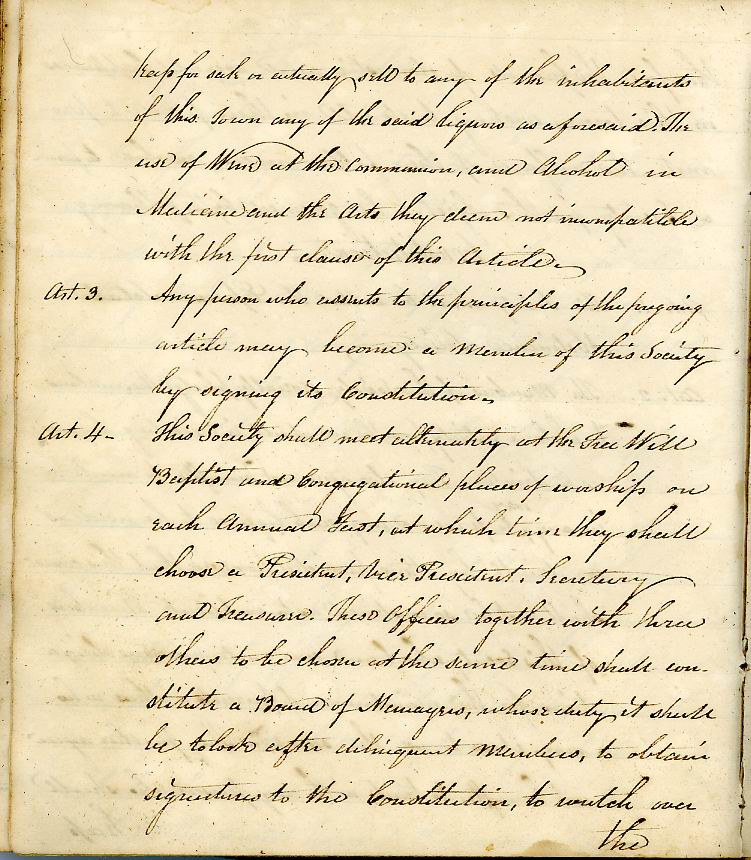 keep for sale or actually sell to any of the inhabitants
of this Town any of the said liquors as aforesaid. The
use of Wine at the Communion, and Alcohol in
Medicine and the Arts they deem not incompatible
with the first clause of this Article.
Art. 3. Any person who assents to the principles of the foregoing
article may become a Member of this Society
by signing its Constitution.
Art. 4 - This Society shall meet alternately at the Free Will
Baptist and Congregational places of worship on
each Annual Fast, at which time they shall
choose a President, Vice President, Secretary
and Treasurer. These Officers together with three
others to be chosen at the same time shall con-
stitute a Board of Managers, whose duty it shall
be to look after delinquent Members, to obtain
signatures to the Constitution, to watch over
the